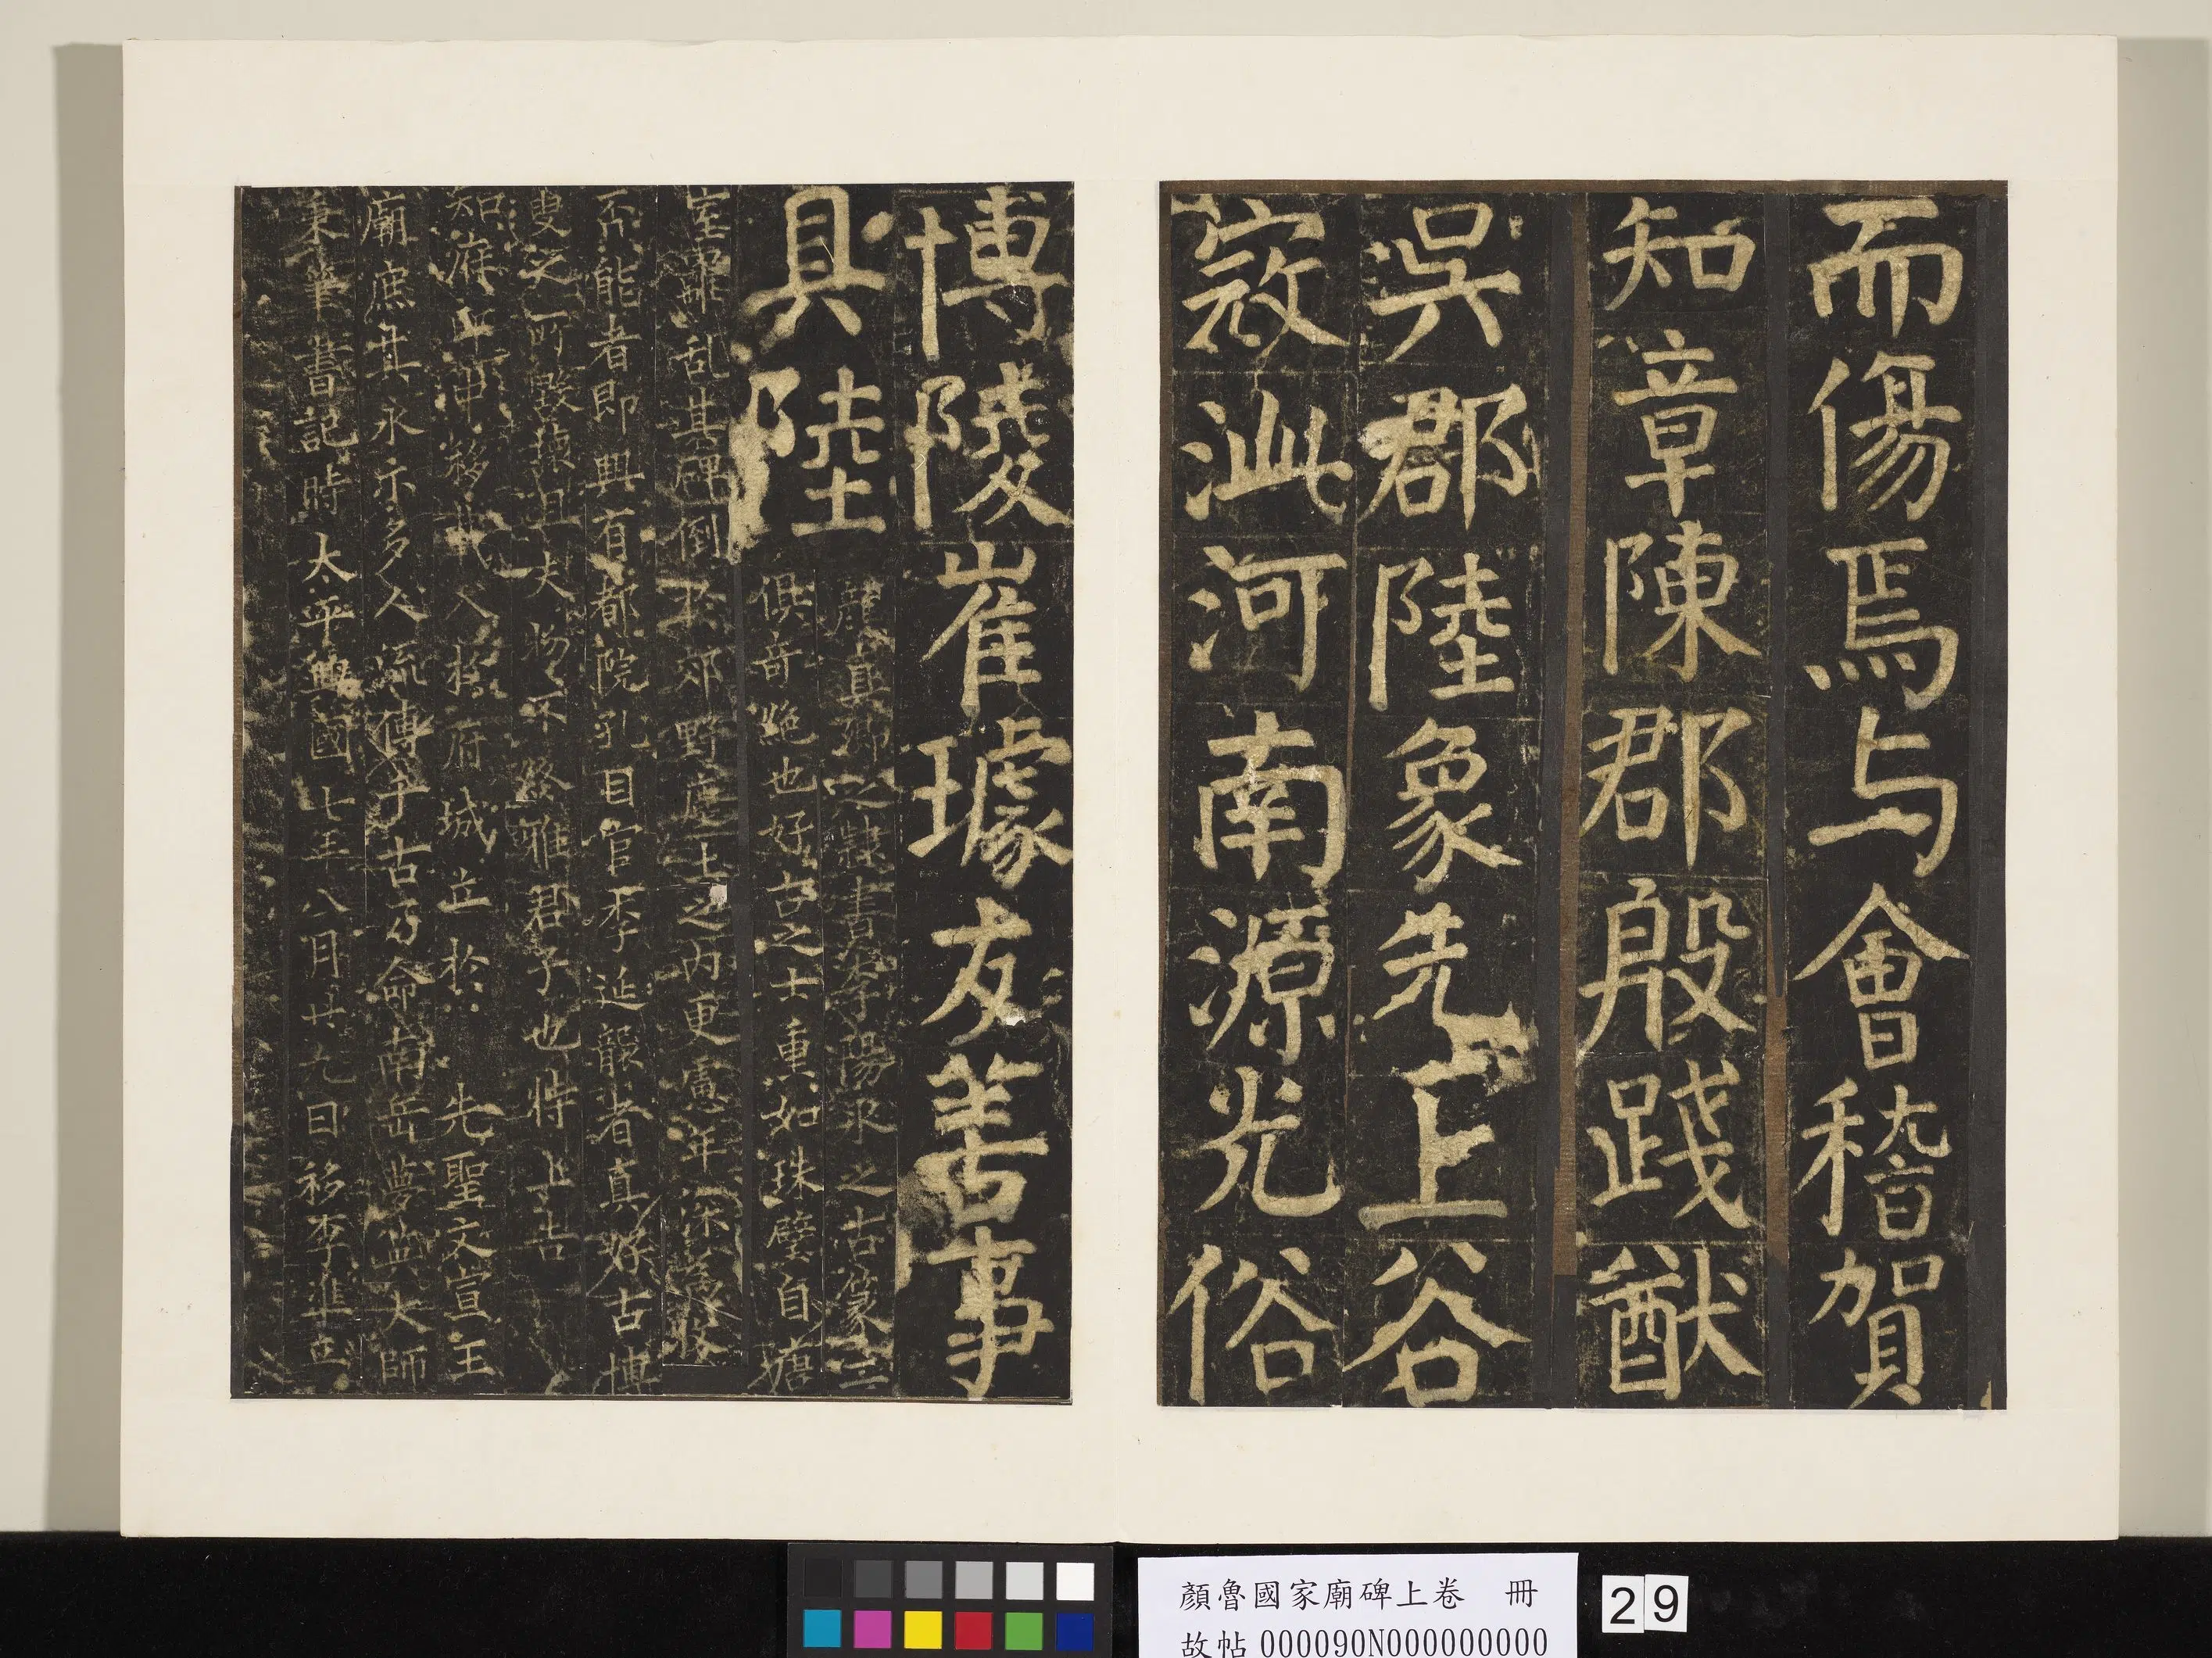 而傷焉与會稽賀
知章陳郡殷踐猷
吳郡陸象先上谷
寇泚河南源光俗
博陵崔璩友善事
具陸
顏真卿之隸書李陽冰之古篆二
俱奇絶也好古之士重如珠璧自
離亂其碑倒於郊野塵土之内更慮年深為牧
不能者即與有都院孔目官李延襲者真好古博
之所毀掠且夫物不終雅君子也特上告
知府 移載入於府城立於先聖文宣王
廟庶其永示多人流傳千古乃命南岳夢英大師
秉筆書記時太平興國七年八月廿九日移李準立
顏魯國家廟碑上卷 冊
故帖 000090N000000000
29